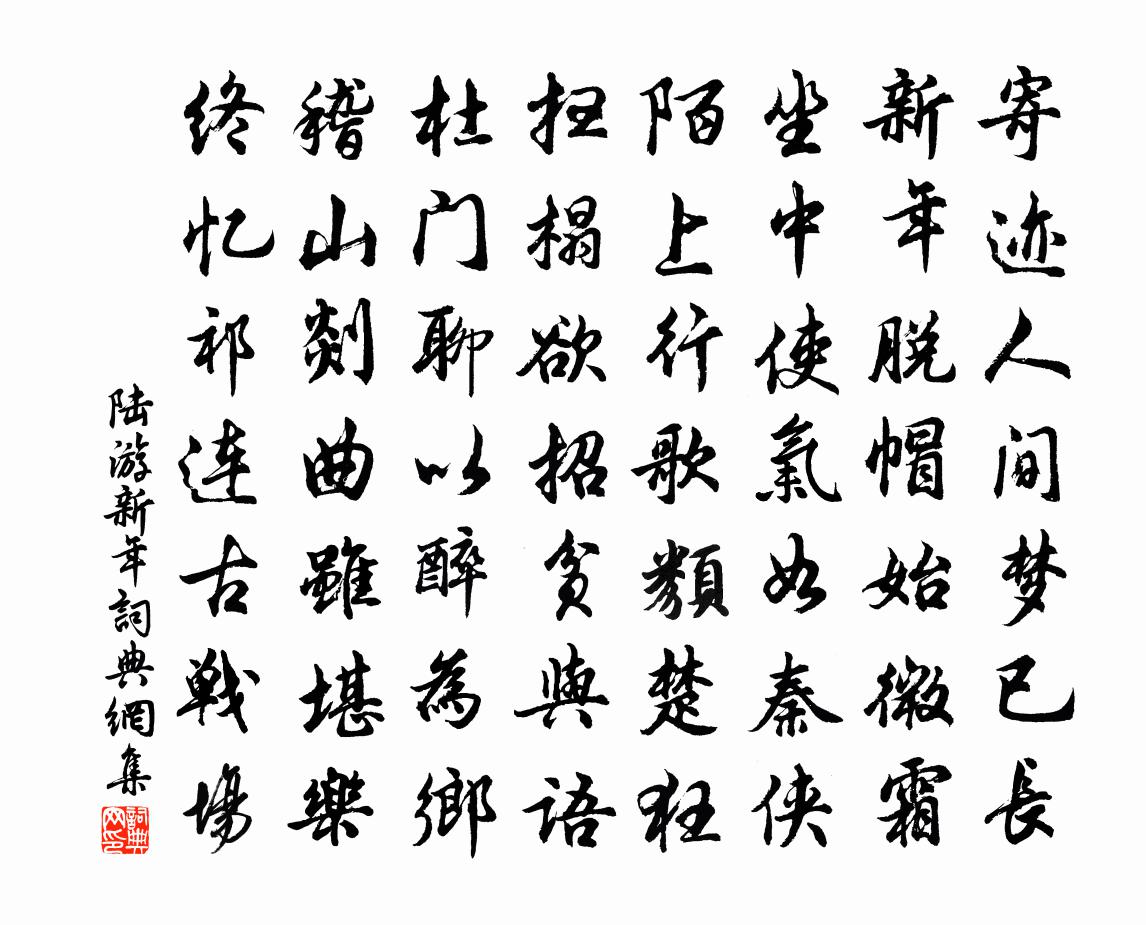 寄迹人间梦已长
新年脱帽始微霜
坐中使氣如秦侠
陌上行歌類楚狂
扫榻欲招贫與语
杜门聊以醉為鄉
稽山剡曲雖堪樂
终忆祁连古戦場
陆游新年詞典網集
詞典网印